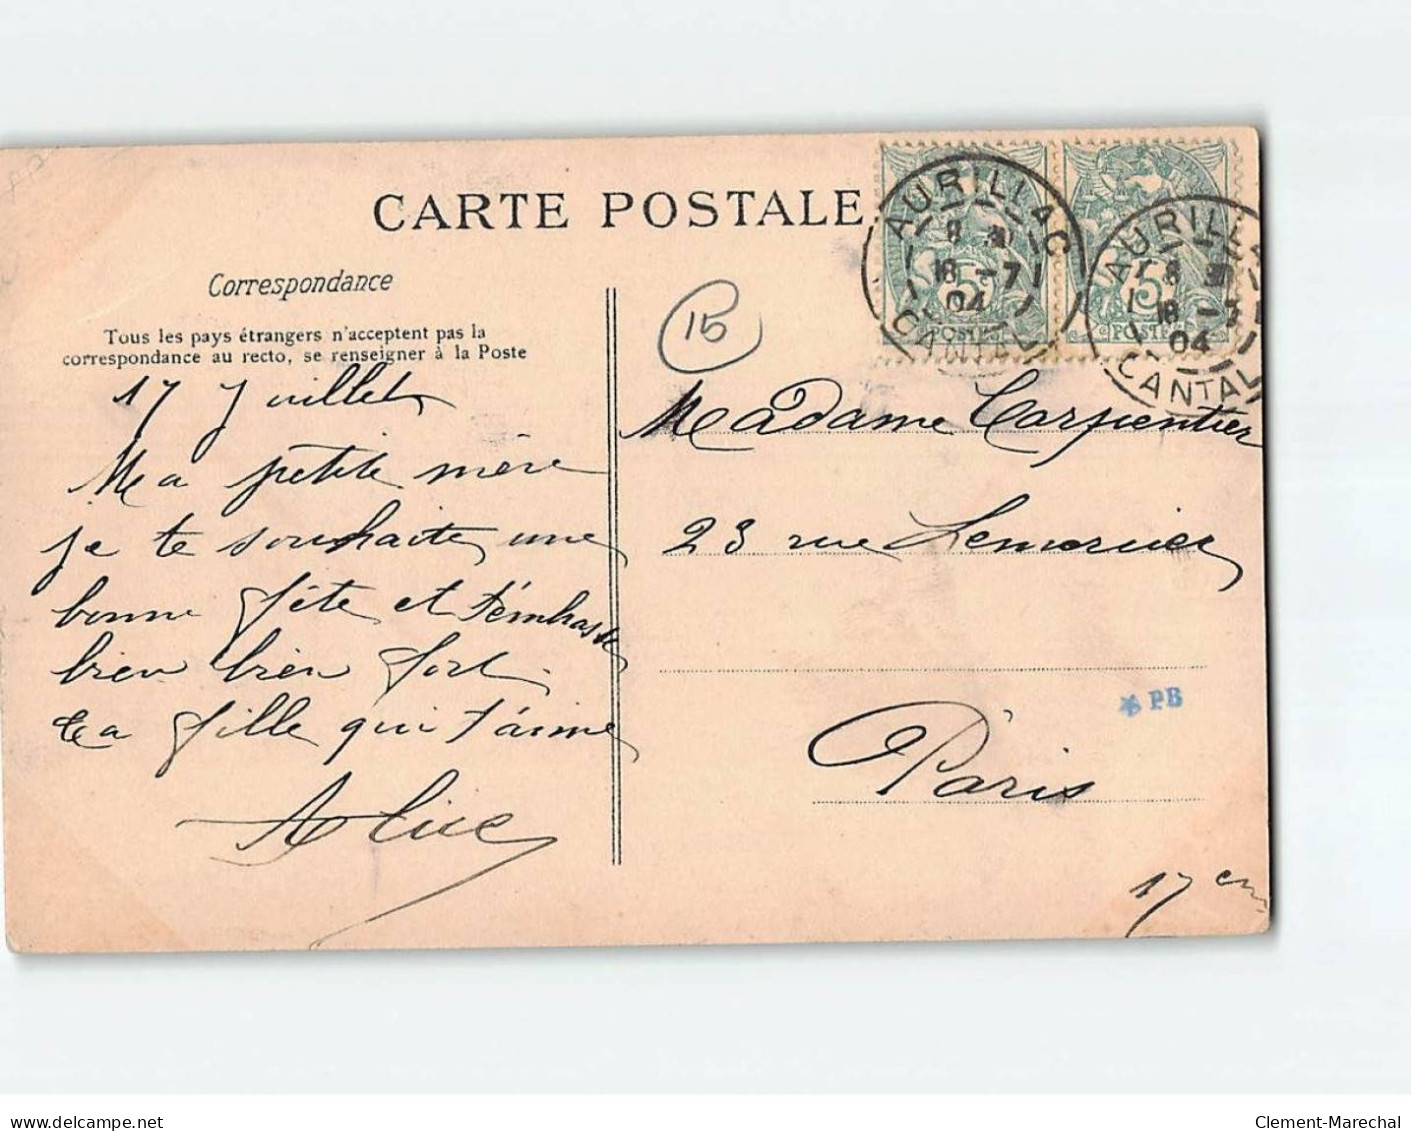 CARTE POSTALE
Correspondance
Tous les pays étrangers n'acceptent pas la
correspondance au recto, se renseigner à la Poste
17 Juillet
Ma petite mère
je te souhaite une
bonne fête et t'embrasse
bien bien fort
ta fille qui t'aime
Alice
15
AURILLAC
8
18 -7
04
CANTAL
5
POSTES
AURILLA
8
18 -7
04
CANTAL
5
POSTE
Madame Carpentier
23 rue Lemercier
Paris
PB
17 em
delcampe.net
Clement-Marechal